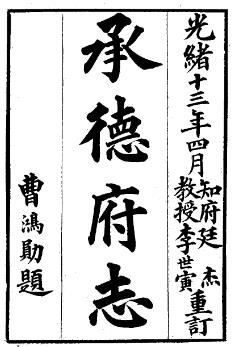 光緒十三年四月知府廷杰教授李世寅重訂
承德府志
曹鴻勛題